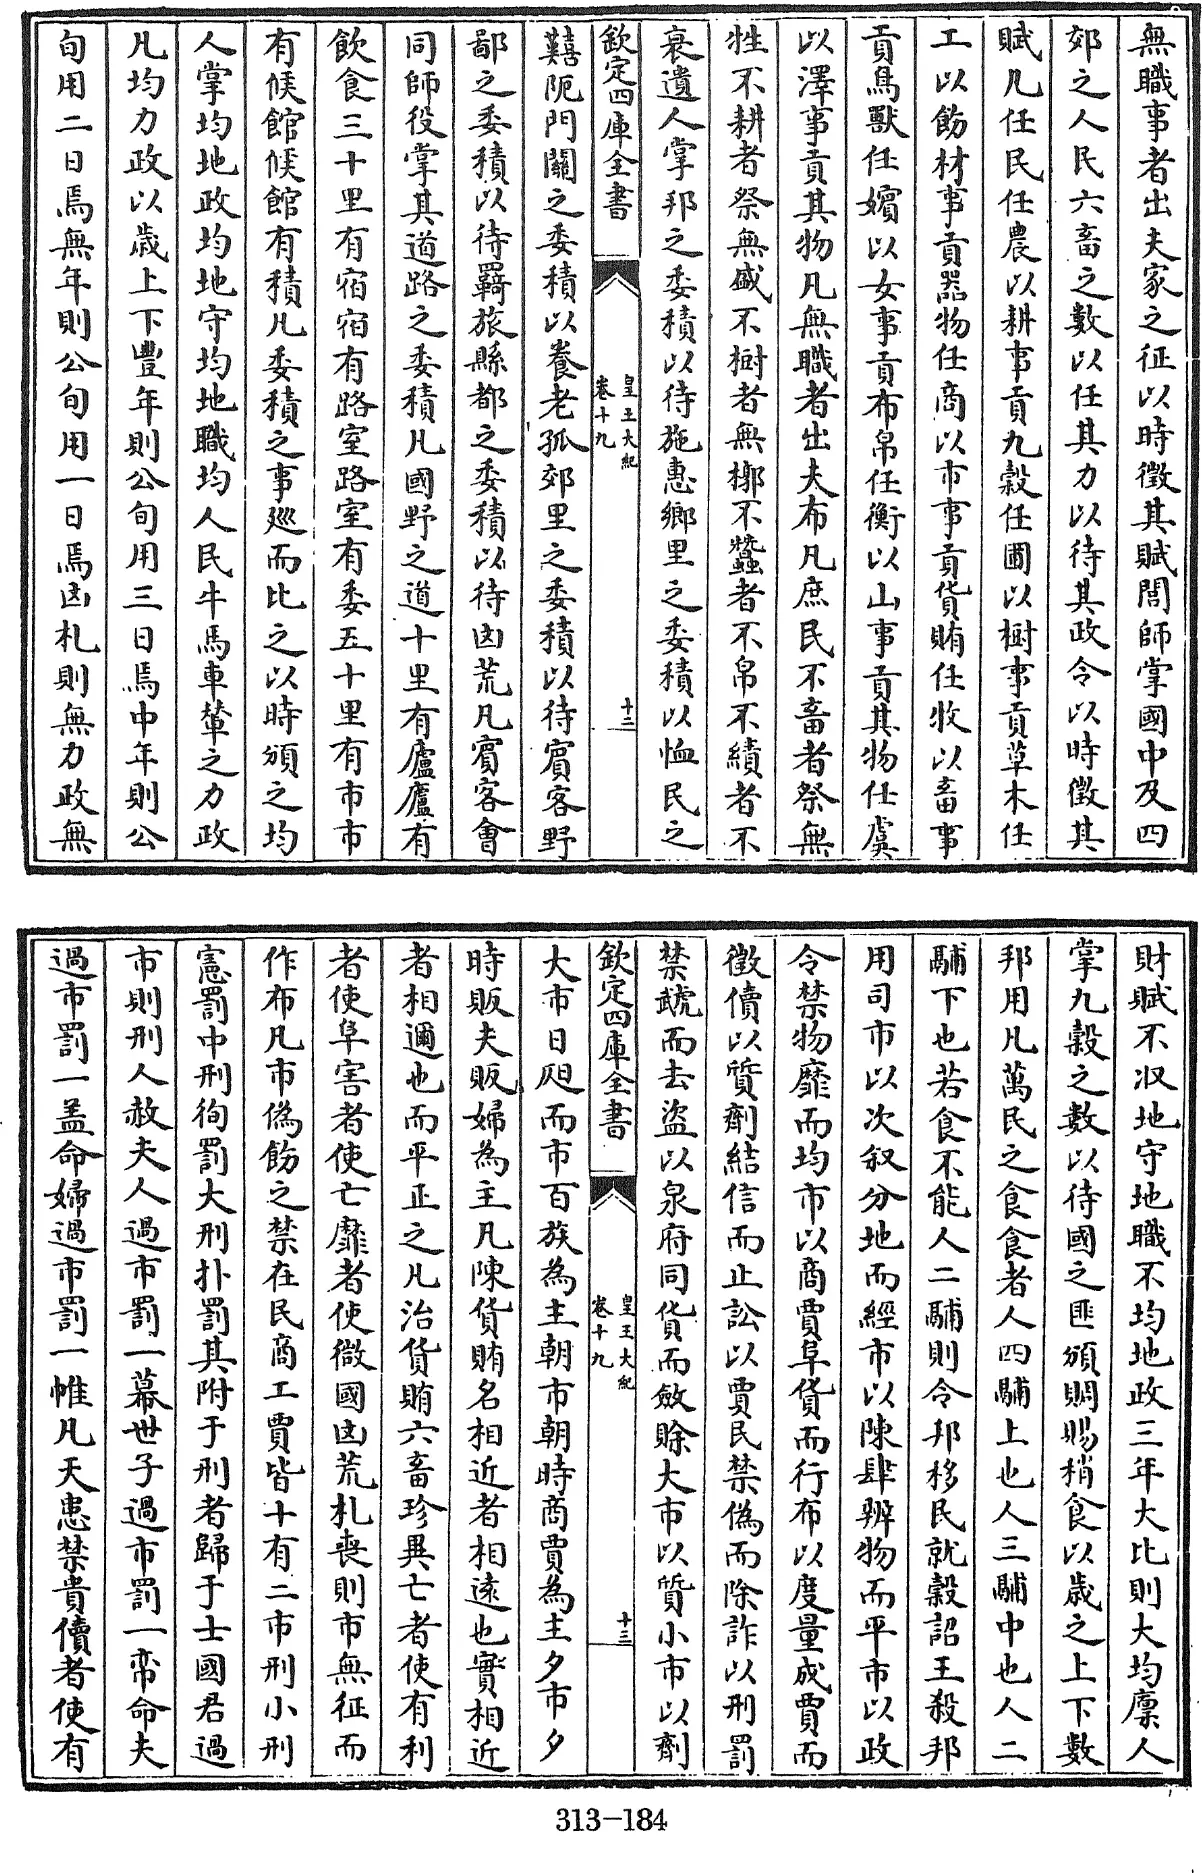 無職事者出夫家之征以時徵其賦閭師掌國中及四
郊之人民六畜之數以任其力以待其政令以時徵其
賦凡任民任農以耕事貢九穀任圃以樹事貢草木任
工以飭材事貢器物任商以市事貢貨賄任牧以畜事
貢鳥獸任嬪以女事貢布帛任衡以山事貢其物任虞
以澤事貢其物凡無職者出夫布凡庶民不畜者祭無
牲不耕者祭無盛不樹者無槨不蠶者不帛不績者不
衰遺人掌邦之委積以待施惠鄉里之委積以恤民之
欽定四庫全書
皇王大紀
卷十九
十二
囏阨門關之委積以養老孤郊里之委積以待賓客野
鄙之委積以待羇旅縣都之委積以待凶荒凡賓客會
同師役掌其道路之委積凡國野之道十里有廬廬有
飲食三十里有宿宿有路室路室有委五十里有市市
有候館候館有積凡委積之事廵而比之以時頒之均
人掌均地政均地守均地職均人民牛馬車輦之力政
凡均力政以歲上下豐年則公旬用三日焉中年則公
旬用二日焉無年則公旬用一日焉凶札則無力政無
財賦不収地守地職不均地政三年大比則大均廩人
掌九穀之數以待國之匪頒賙賜稍食以歲之上下數
邦用凡萬民之食食者人四鬴上也人三鬴中也人二
鬴下也若食不能人二鬴則令邦移民就穀詔王殺邦
用司市以次叙分地而經市以陳肆辨物而平市以政
令禁物靡而均市以商賈阜貨而行布以度量成賈而
徵儥以質劑結信而止訟以賈民禁偽而除詐以刑罰
禁虣而去盜以泉府同貨而斂賖大市以質小市以劑
欽定四庫全書
皇王大紀
卷十九
十三
大市日昃而市百族為主朝市朝時商賈為主夕市夕
時販夫販婦為主凡陳貨賄名相近者相逺也實相近
者相邇也而平正之凡治貨賄六畜珍異亡者使有利
者使阜害者使亡靡者使微國凶荒札喪則市無征而
作布凡市偽飭之禁在民商工賈皆十有二市刑小刑
憲罰中刑徇罰大刑扑罰其附于刑者歸于士國君過
市則刑人赦夫人過市罰一幕世子過市罰一帟命夫
過市罰一盖命婦過市罰一帷凡天患禁貴儥者使有
313-184